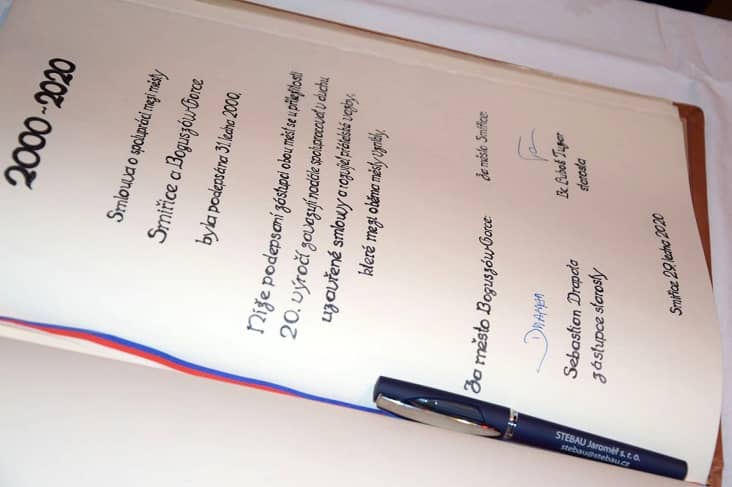 2000-2020
Smlouva o spolupráci mezi městy
Smiřice a Boguszów-Gorce
byla podepsána 31. ledna 2000.
Níže podepsaní zástupci obou měst se u příležitosti
20. výročí zavazují nadále spolupracovat v duchu
uzavřené smlouvy a rozvíjet přátelské vazby,
které mezi oběma městy vznikly.
Za město Boguszów-Gorce
Za město Smiřice
Sebastian Drapała
zástupce starosty
Bc. Luboš Tuzar
starosta
Smiřice 29. ledna 2020
STEBAU Jaroměř s. r. o.
stebau@stebau.cz